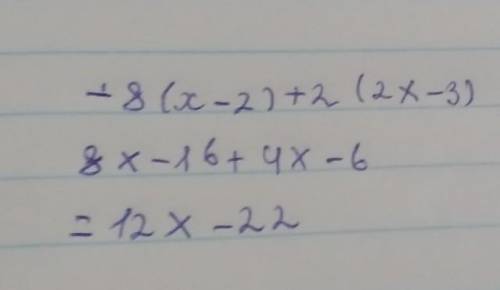 - 8 (x - 2) + 2 (2x - 3)
8x - 16 + 4x - 6
= 12x - 22